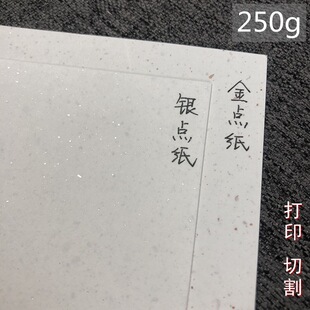 250g
金点纸
银点纸
打印 切割